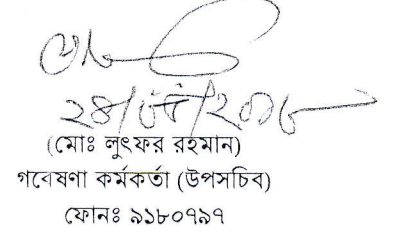 (মোঃ লুৎফর রহমান)
গবেষণা কর্মকর্তা (উপসচিব)
ফোনঃ ৯১৮০৭৯৭